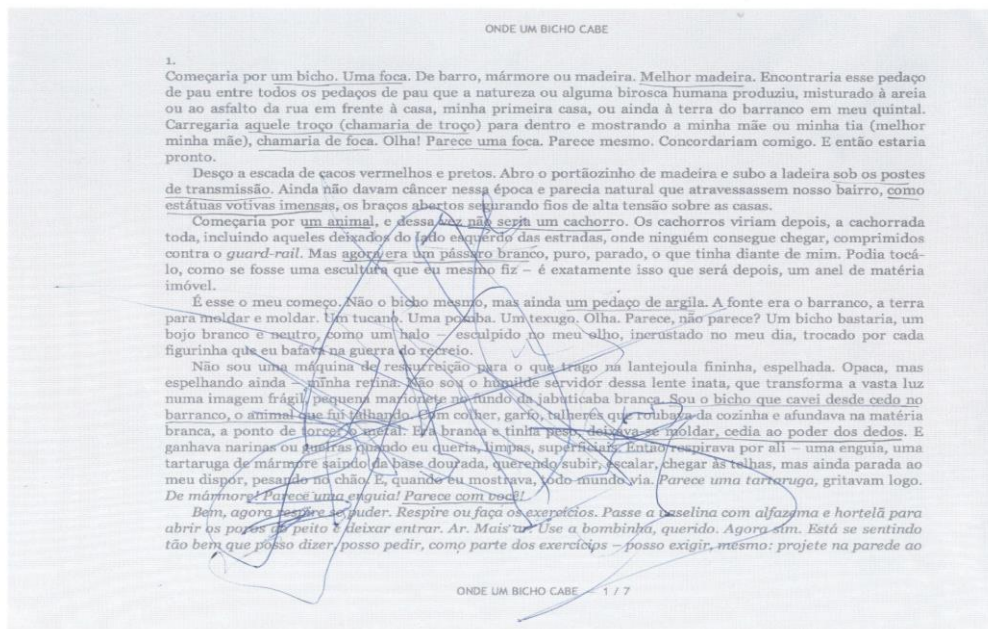 ONDE UM BICHO CABE
1.
Começaria por um bicho. Uma foca. De barro, mármore ou madeira. Melhor madeira. Encontraria esse pedaço
de pau entre todos os pedaços de pau que a natureza ou alguma birosca humana produziu, misturado à areia
ou ao asfalto da rua em frente à casa, minha primeira casa, ou ainda à terra do barranco em meu quintal.
Carregaria aquele troço (chamaria de troço) para dentro e mostrando a minha mãe ou minha tia (melhor
minha mãe), chamaria de foca. Olha! Parece uma foca. Parece mesmo. Concordariam comigo. E então estaria
pronto.
Desço a escada de cacos vermelhos e pretos. Abro o portãozinho de madeira e subo a ladeira sob os postes
de transmissão. Ainda não davam câncer nessa época e parecia natural que atravessassem nosso bairro, como
estátuas votivas imensas, os braços abertos segurando fios de alta tensão sobre as casas.
Começaria por um animal, e dessa vez não seria um cachorro. Os cachorros viriam depois, a cachorrada
toda, incluindo aqueles deixados do lado esquerdo das estradas, onde ninguém consegue chegar, comprimidos
contra o guard-rail. Mas agora era um pássaro branco, puro, parado, o que tinha diante de mim. Podia tocá-
lo, como se fosse uma escultura que eu mesmo fiz – é exatamente isso que será depois, um anel de matéria
imóvel.
É esse o meu começo. Não o bicho mesmo, mas ainda um pedaço de argila. A fonte era o barranco, a terra
para moldar e moldar. Um tucano. Uma pomba. Um texugo. Olha. Parece, não parece? Um bicho bastaria, um
bojo branco e neutro, como um halo – esculpido no meu olho, incrustado no meu dia, trocado por cada
figurinha que eu bafava na guerra do recreio.
Não sou uma máquina de ressurreição para o que trago na lantejoula fininha, espelhada. Opaca, mas
espelhando ainda – minha retina. Não sou o humilde servidor dessa lente inata, que transforma a vasta luz
numa imagem frágil, pequena marionete no fundo da jabuticaba branca. Sou o bicho que cavei desde cedo no
barranco, o animal que fui talhando. Com colher, garfo, talheres que roubava da cozinha e afundava na matéria
branca, a ponto de torcer o metal. Era branca e tinha peso, deixava-se moldar, cedia ao poder dos dedos. E
ganhava narinas ou guelras quando eu queria, limpas, superficiais. Então respirava por ali – uma enguia, uma
tartaruga de mármore saindo da base dourada, querendo subir, escalar, chegar às telhas, mas ainda parada ao
meu dispor, pesando no chão. E, quando eu mostrava, todo mundo via. Parece uma tartaruga, gritavam logo.
De mármore! Parece uma enguia! Parece com você!
Bem, agora respire se puder. Respire ou faça os exercícios. Passe a vaselina com alfazema e hortelã para
abrir os poros do peito e deixar entrar. Ar. Mais ar. Use a bombinha, querido. Agora sim. Está se sentindo
tão bem que posso dizer, posso pedir, como parte dos exercícios – posso exigir, mesmo: projete na parede ao
ONDE UM BICHO CABE – 1 / 7